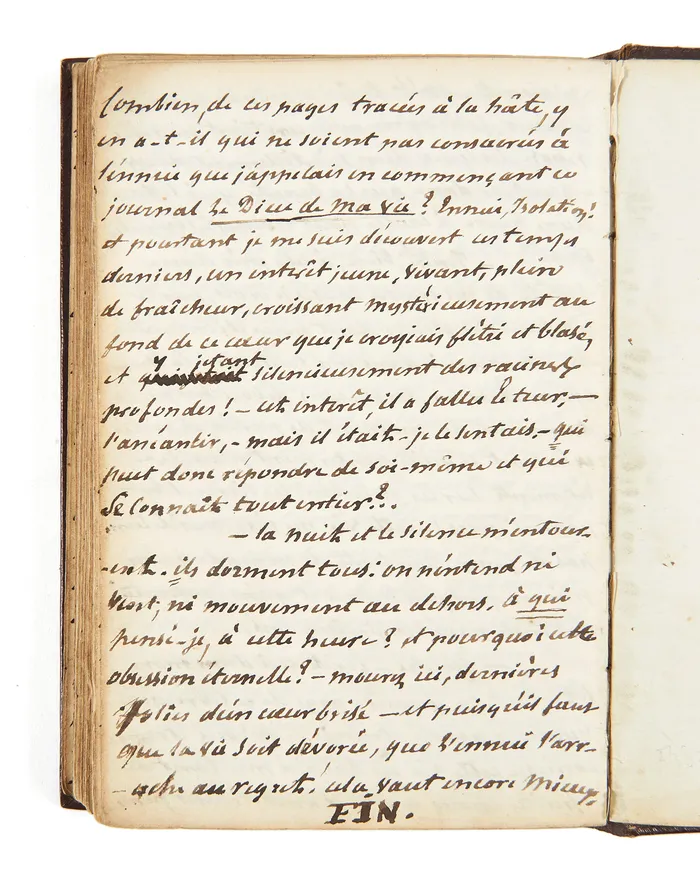 Combien, de ces pages tracées à la hâte, y
en a-t-il qui ne soient pas consacrées à
l'ennui que j'appelais en commençant ce
journal Le Dieu de ma vie? Ennui, Isolation!
et pourtant je me suis découvert ces temps
derniers, un intérêt jeune, vivant, plein
de fraîcheur, croissant mystérieusement au
fond de ce cœur que je croyais flétri et blasé,
et y jetant silencieusement des racines
profondes! – cet intérêt, il a fallu le tuer, –
l'anéantir, – mais il était – je le sentais. – qui
peut donc répondre de soi-même et qui
se connaît tout entier?..
– la nuit et le silence m'entour-
-ent. ils dorment tous: on n'entend ni
vent, ni mouvement au dehors. à qui
pensé-je, à cette heure? et pourquoi cette
obsession éternelle? – mourez ici, dernières
folies d'un cœur brisé – et puisqu'il faut
que la vie soit dévorée, que l'ennui l'arr-
-ache au regret! cela vaut encore mieux.
FIN.